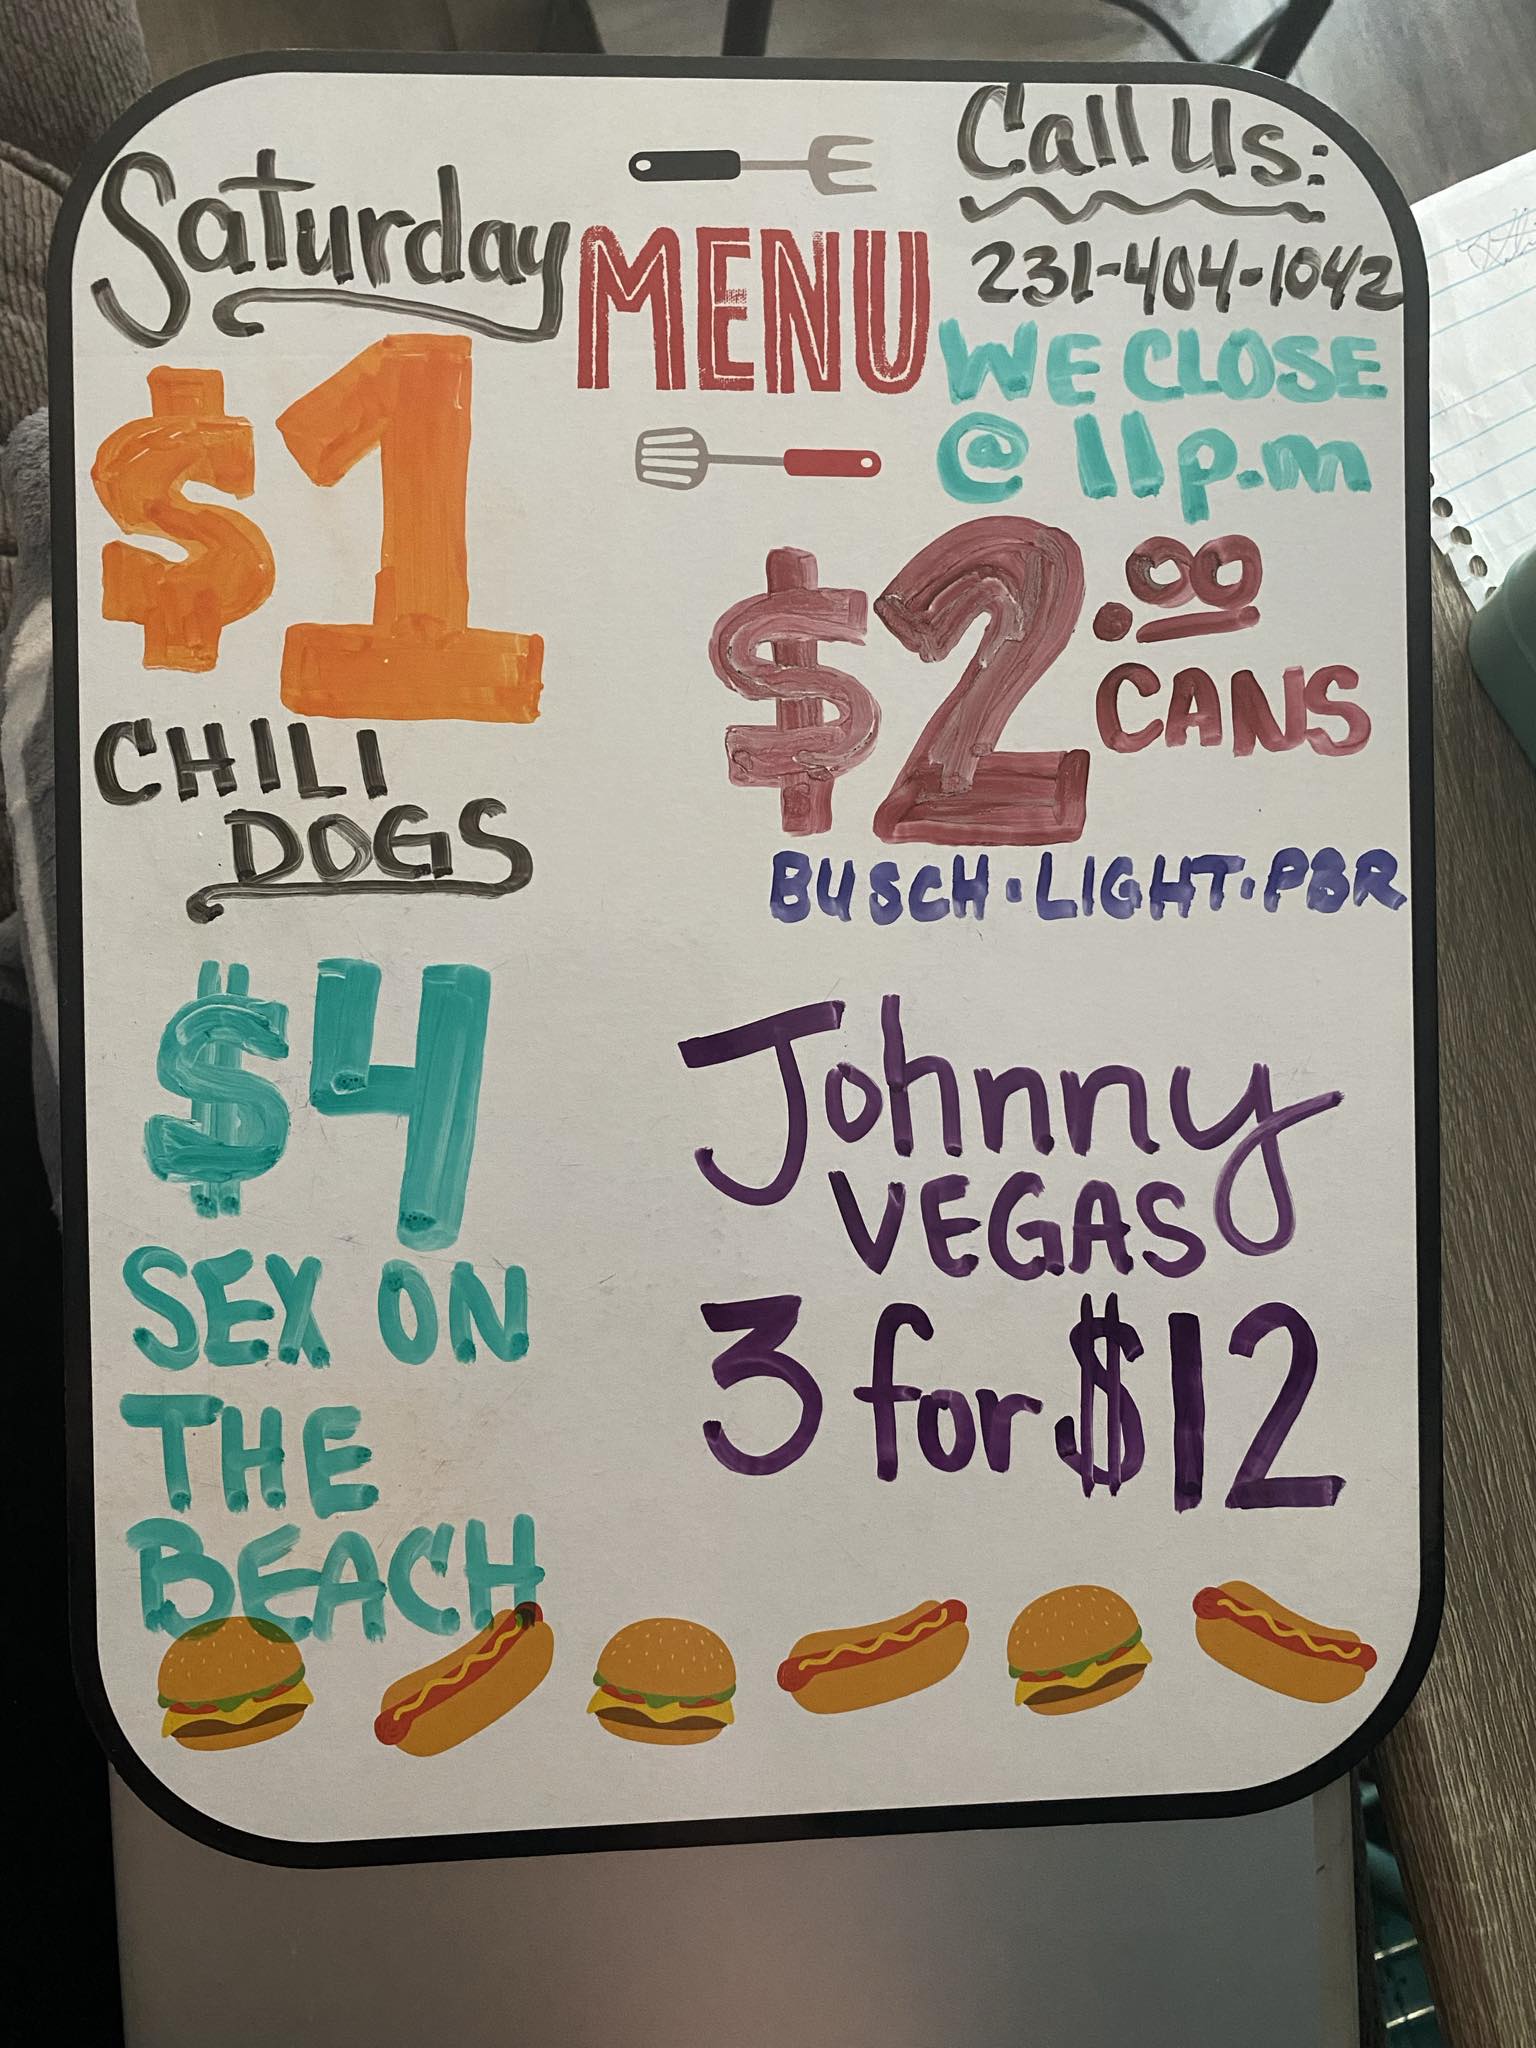 Saturday
MENU
Call Us:
231-404-1042
WE CLOSE
@ 11p.m
$1
CHILI
DOGS
$2.00
CANS
BUSCH·LIGHT·PBR
$4
SEX ON
THE
BEACH
Johnny
VEGAS
3 for $12